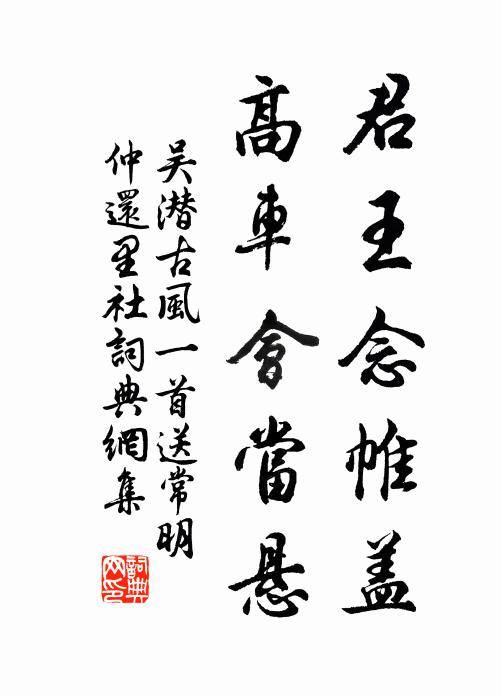 君王念帷盖
高車會當懸
吴潜古風一首送常明
仲還里社詞典網集
詞典网印